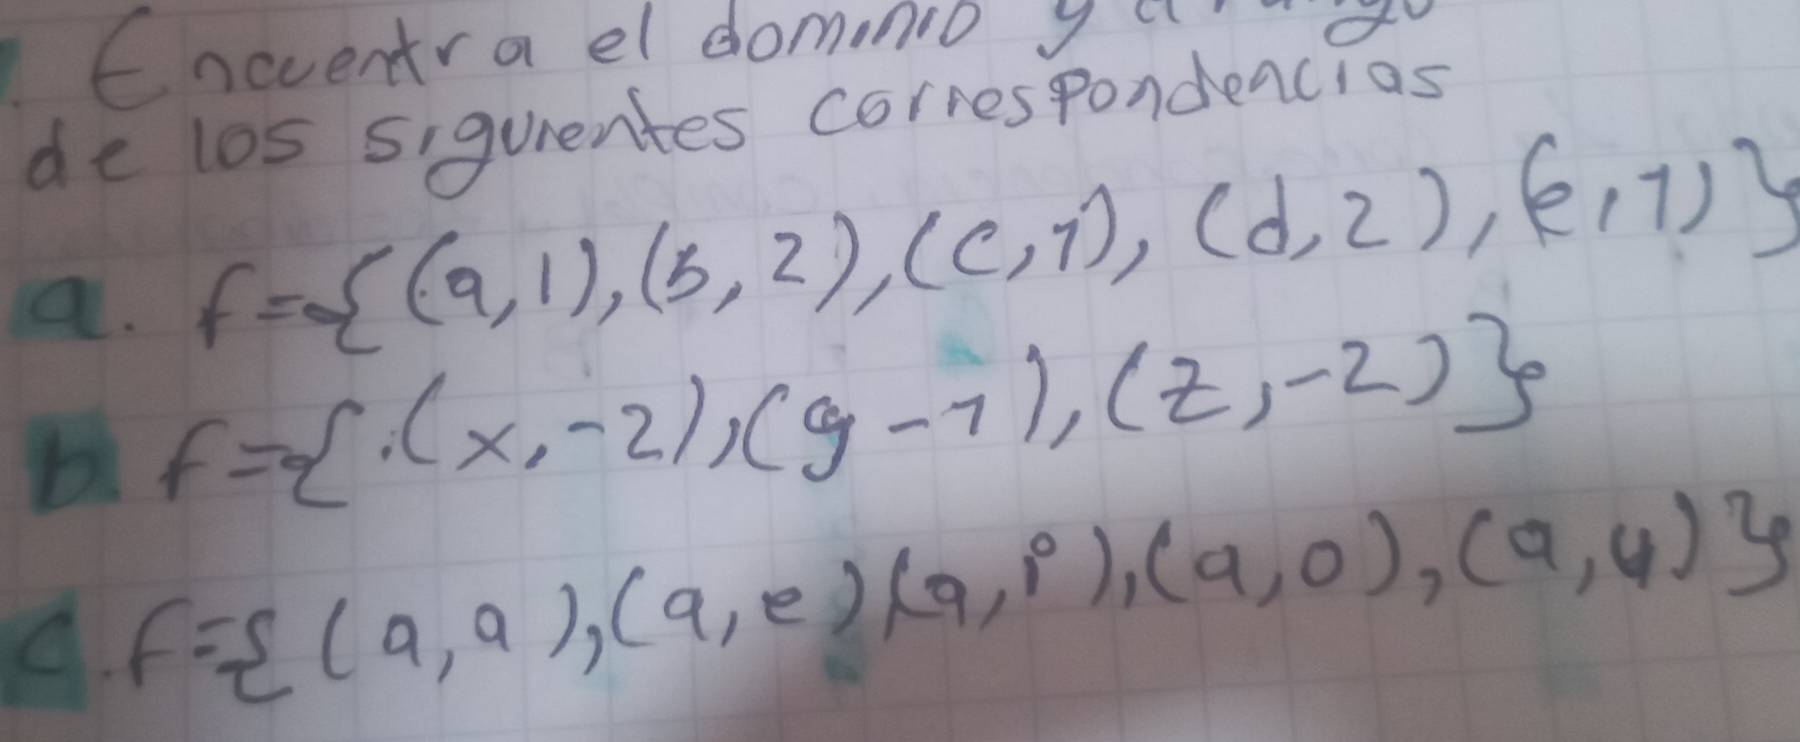 . Encuentra el dominio y
de los sigurentes correspondencias
a. f={(a,1),(b,2),(c,1),(d,2),(e,1)}
b f={.(x,-2),(y-1),(z,-2)}
c. f={(a,a),(a,e)(a,i),(a,o),(a,u)}